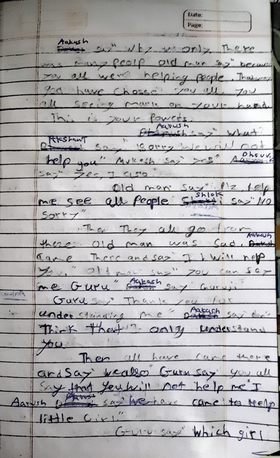 Date:
Page:
Aakash
say "Why we only There
was many peolp old man say" becaus
you all were helping people. That
god have chosse you all. you
all seeing mark on your hand
This is your Powers.
Aarush
say what
Akshat
say "Sorry we will not
help you" Mukesh say yes"
say Yes, I also
Old man say "Plz help
me see all People Shlok say "No
sorry"
Then They all go from
there old man was sad. Aakash
came There and say I will help
you." Old man say" you can say
me Guru" Aakash say Guruji
Guru say" Thank you for
understanding me" Aakash say
Think that I only understand
you
Then all have came there
and say we also Guru say you all
say that you will not help me I
Aarush say we have came to Help
little Girl"
Guru say which girl